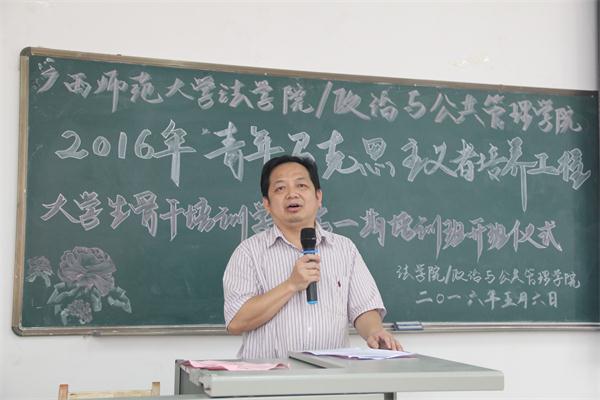 广西师范大学法学院/政治与公共管理学院
2016年青年马克思主义者培养工程
大学生骨干培训 一期培训班开班仪式
法学院/政治与公共管理学院
二〇一六年五月六日